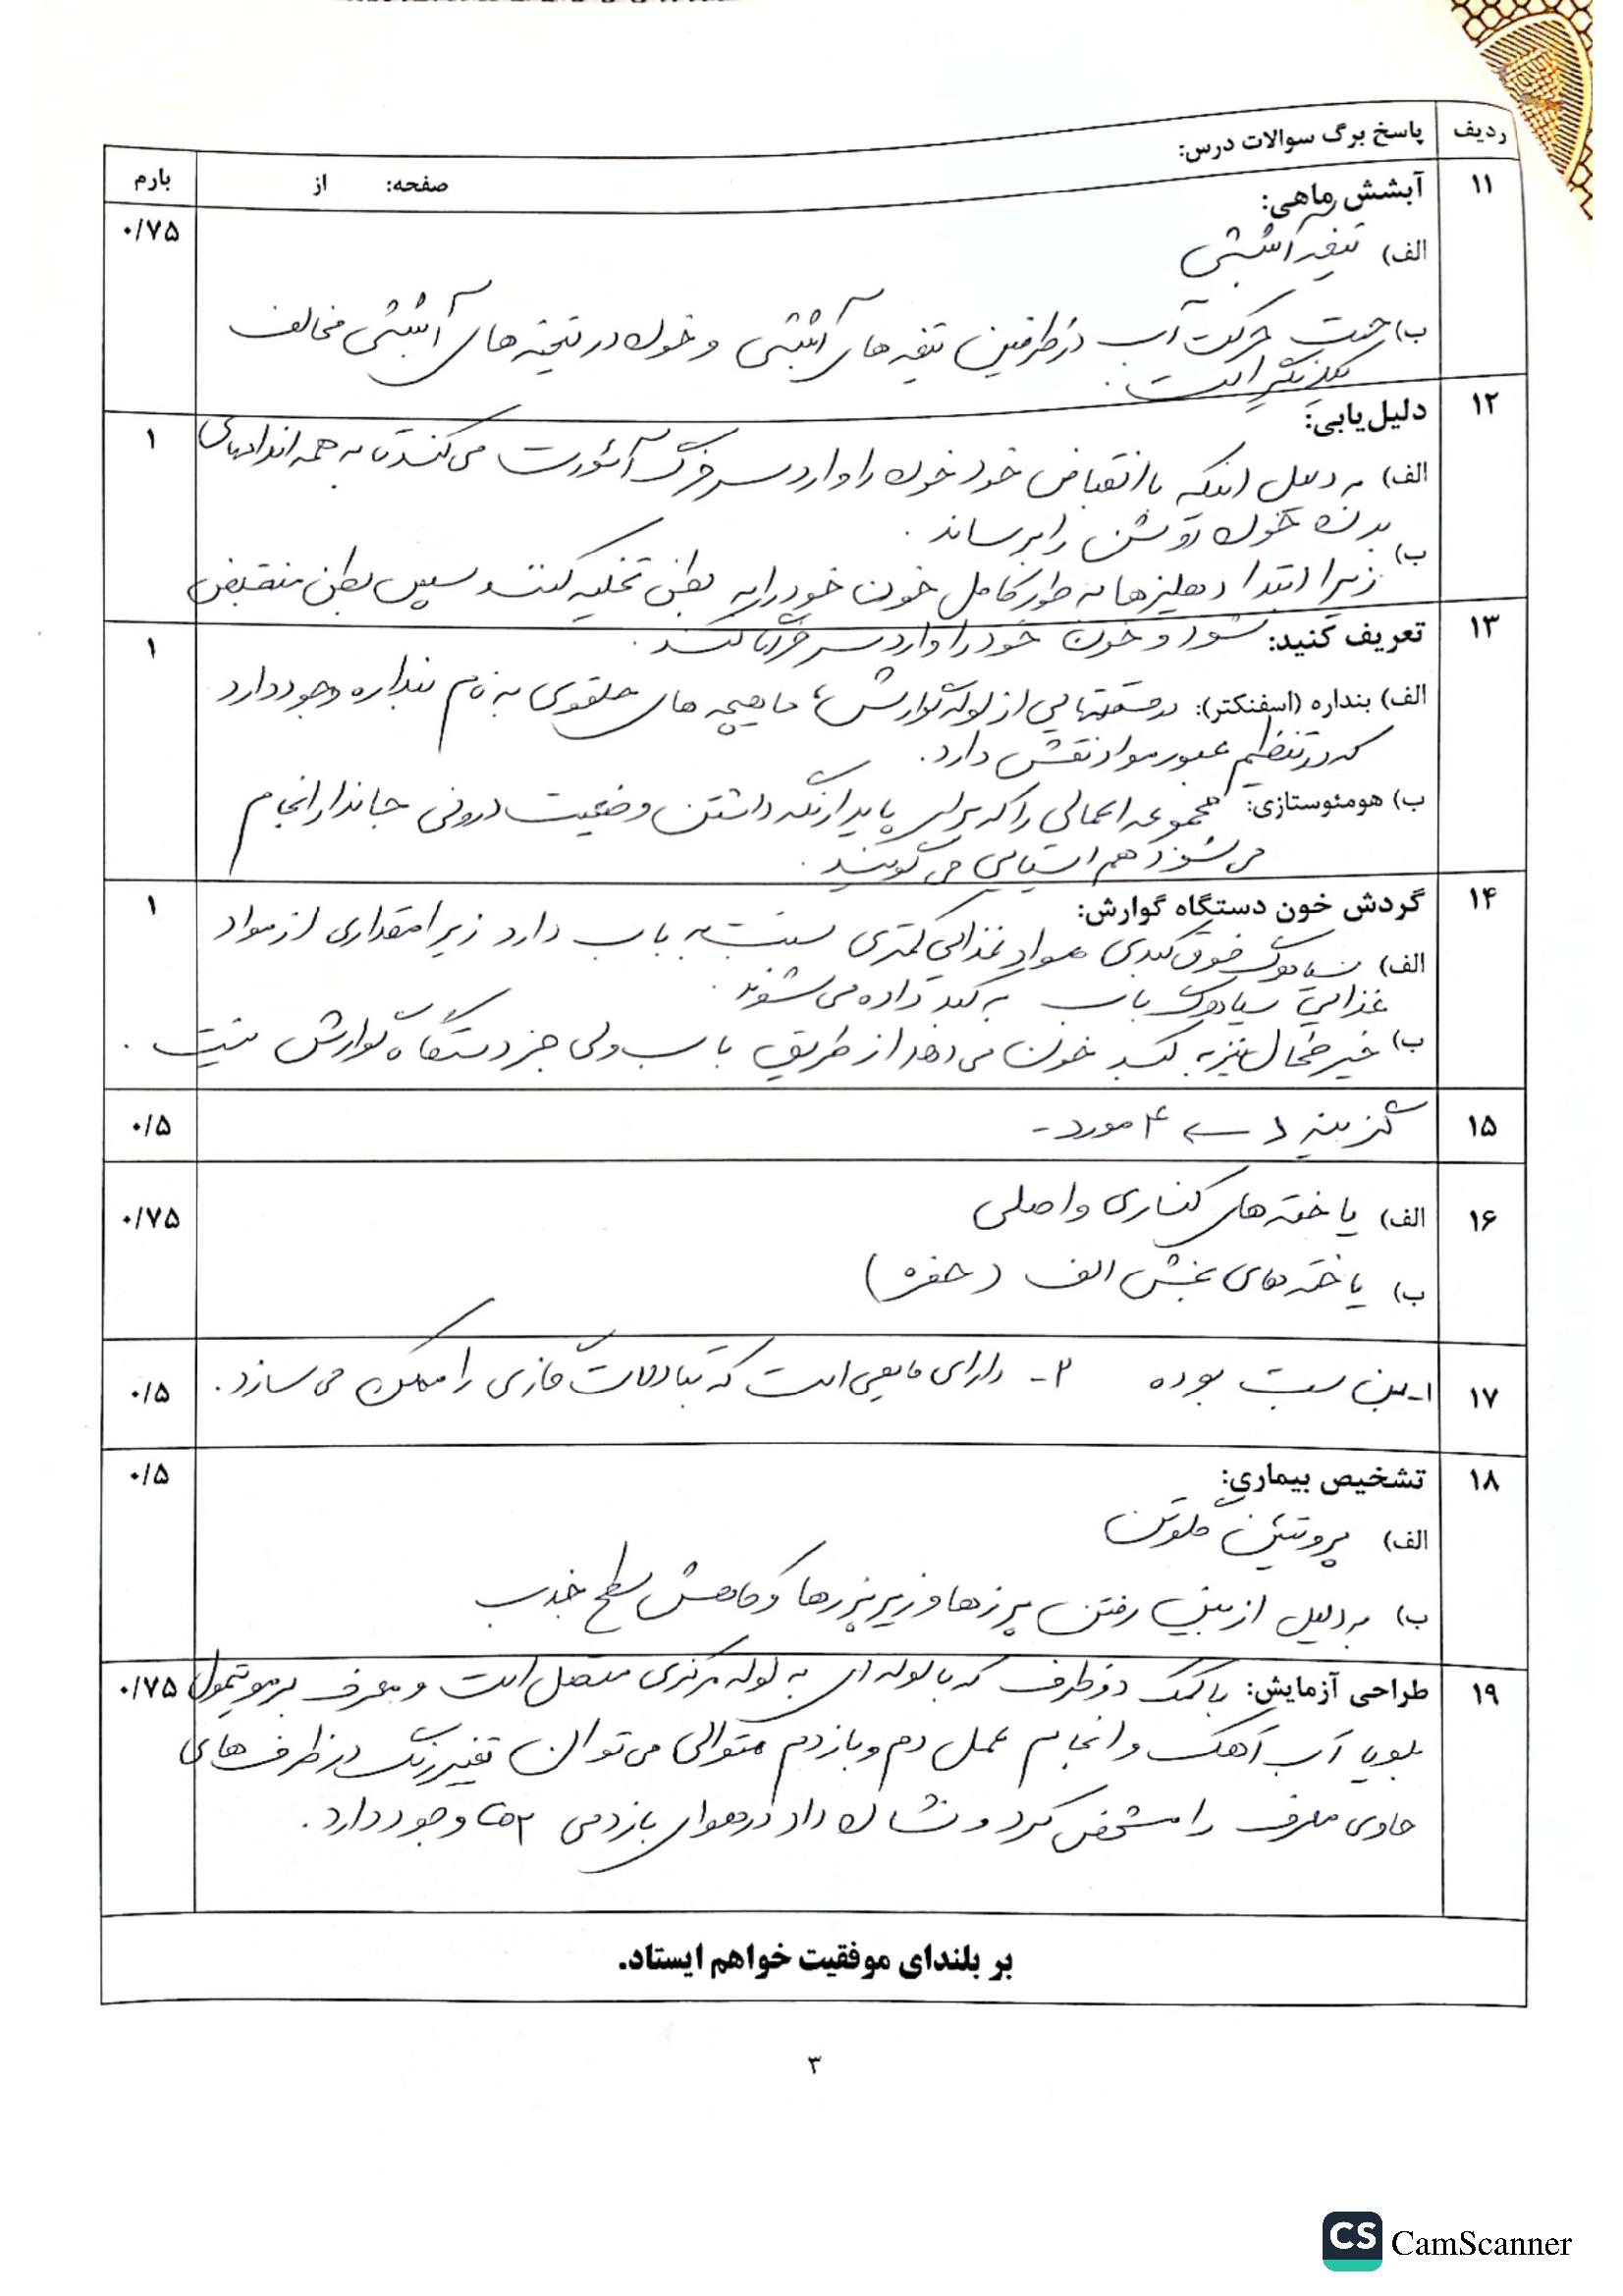 ردیف
پاسخ برگ سوالات درس:
صفحه: از
بارم
۱۱
آبشش ماهی:
۰/۷۵
الف) تیغه آبششی
ب) جهت حرکت آب در طرفین تیغه های آبششی و خون در تیغه های آبششی مخالف
یکدیگر است.
۱۲
دلیل‌یابی:
۱
الف) به دلیل اینکه با انقباض خود خون را وارد سرخرگ آئورت می کند تا به همه اندامهای
بدن خون روشن را برساند.
ب) زیرا ابتدا دهلیزها به طور کامل خون خود را به بطن تخلیه کنند و سپس بطن منقبض
شود و خون خود را وارد سرخرگ‌ها کند.
۱۳
تعریف کنید:
۱
الف) بنداره (اسفنکتر): در قسمتهایی از لوله گوارش، ماهیچه های حلقوی به نام بنداره وجود دارد
که در تنظیم عبور مواد نقش دارد.
ب) هومئوستازی: مجموعه اعمالی را که برای پایدار نگه داشتن وضعیت درونی جاندار انجام
می شود هم ایستایی می گویند.
۱۴
گردش خون دستگاه گوارش:
۱
الف) سیاهرگ فوق کبدی مواد غذایی کمتری نسبت به باب دارد زیرا مقداری از مواد
غذایی سیاهرگ باب به کبد داده می شوند.
ب) خیر طحال نیز به کبد خون می دهد از طریق باب ولی جز دستگاه گوارش نیست.
۱۵
گزینه د ← ۴ مورد -
۰/۵
۱۶
الف) یاخته های کناری و اصلی
۰/۷۵
ب) یاخته های بخش الف (حفره)
۱۷
۱- بن بست بوده ۲- دارای مایعی است که تبادلات گازی را ممکن می سازد.
۰/۵
۱۸
تشخیص بیماری:
۰/۵
الف) پروتئین گلوتن
ب) به دلیل از بین رفتن پرزها و ریزپرزها و کاهش سطح جذب
۱۹
طراحی آزمایش: با کمک دو ظرف که با لوله ای به لوله مرکزی متصل است و معرف برموتیمول
۰/۷۵
بلو یا آب آهک و انجام عمل دم و بازدم متوالی می توان تغییر رنگ در ظرف های
حاوی معرف را مشخص کرد و نشان داد در هوای بازدمی CO۲ وجود دارد.
بر بلندای موفقیت خواهم ایستاد.
۳
CS CamScanner